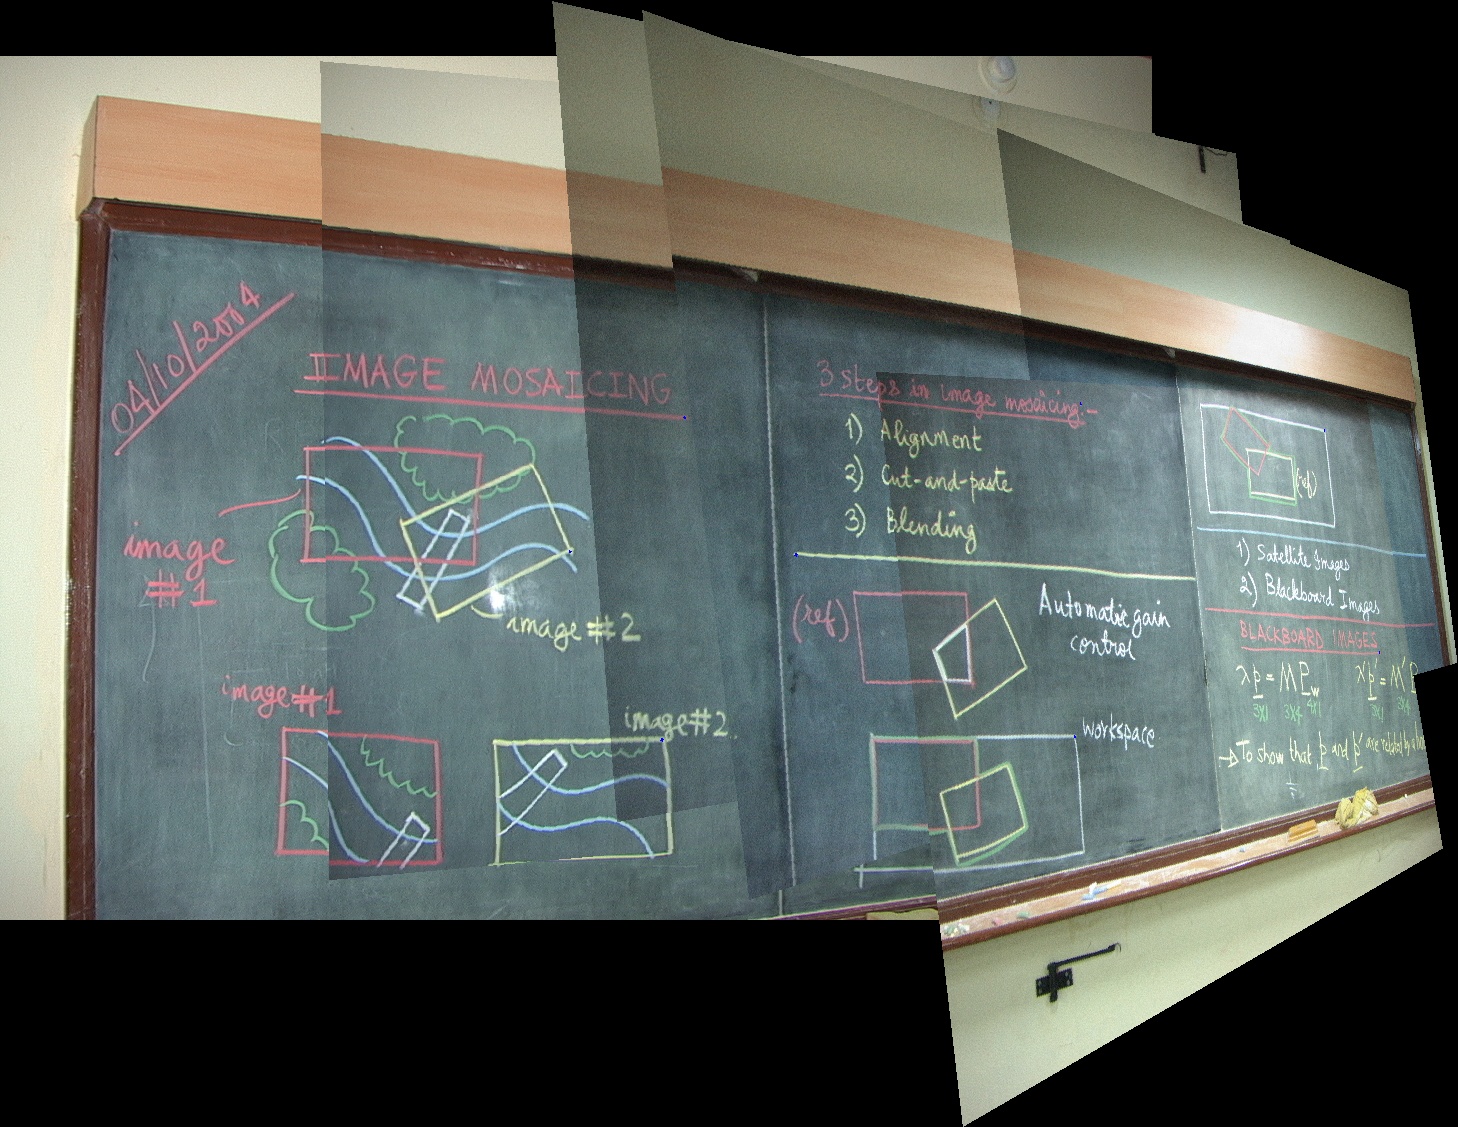 04/10/2004
IMAGE MOSAICING
image
#1
image #2
image#1
image#2
3 steps in image mosaicing:-
1) Alignment
2) Cut-and-paste
3) Blending
(ref)
Automatic gain
control
workspace
(ref)
1) Satellite Images
2) Blackboard Images
BLACKBOARD IMAGES
λp = M P_w λ'p' = M' P
3x1 3x4 4x1 3x1 3x4
→ To show that p and p' are related by a